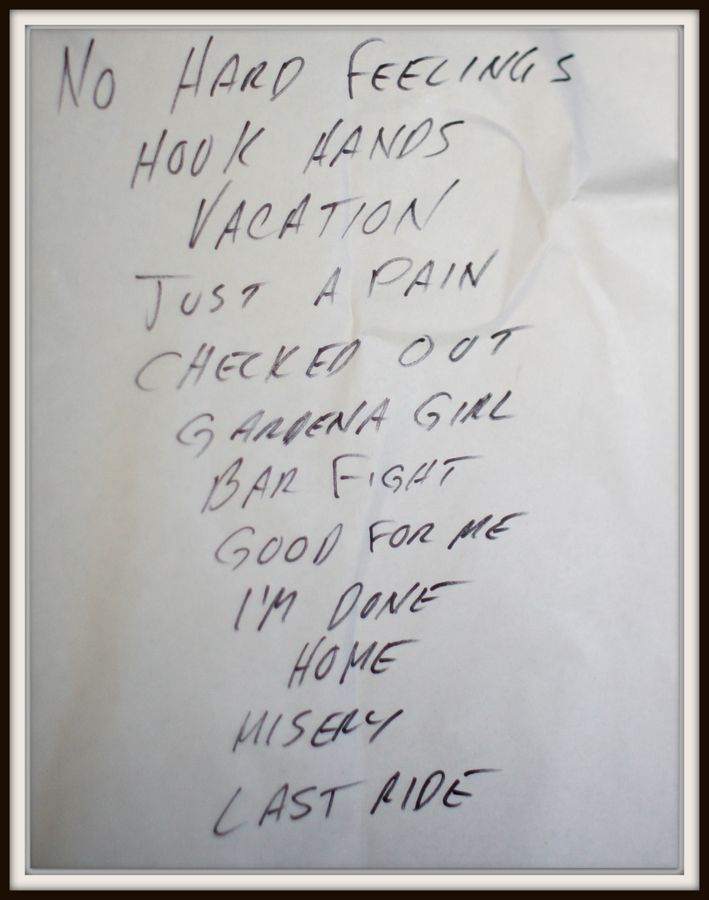 NO HARD FEELINGS
HOOK HANDS
VACATION
JUST A PAIN
CHECKED OUT
GARDENA GIRL
BAR FIGHT
GOOD FOR ME
I'M DONE
HOME
MISERY
LAST RIDE